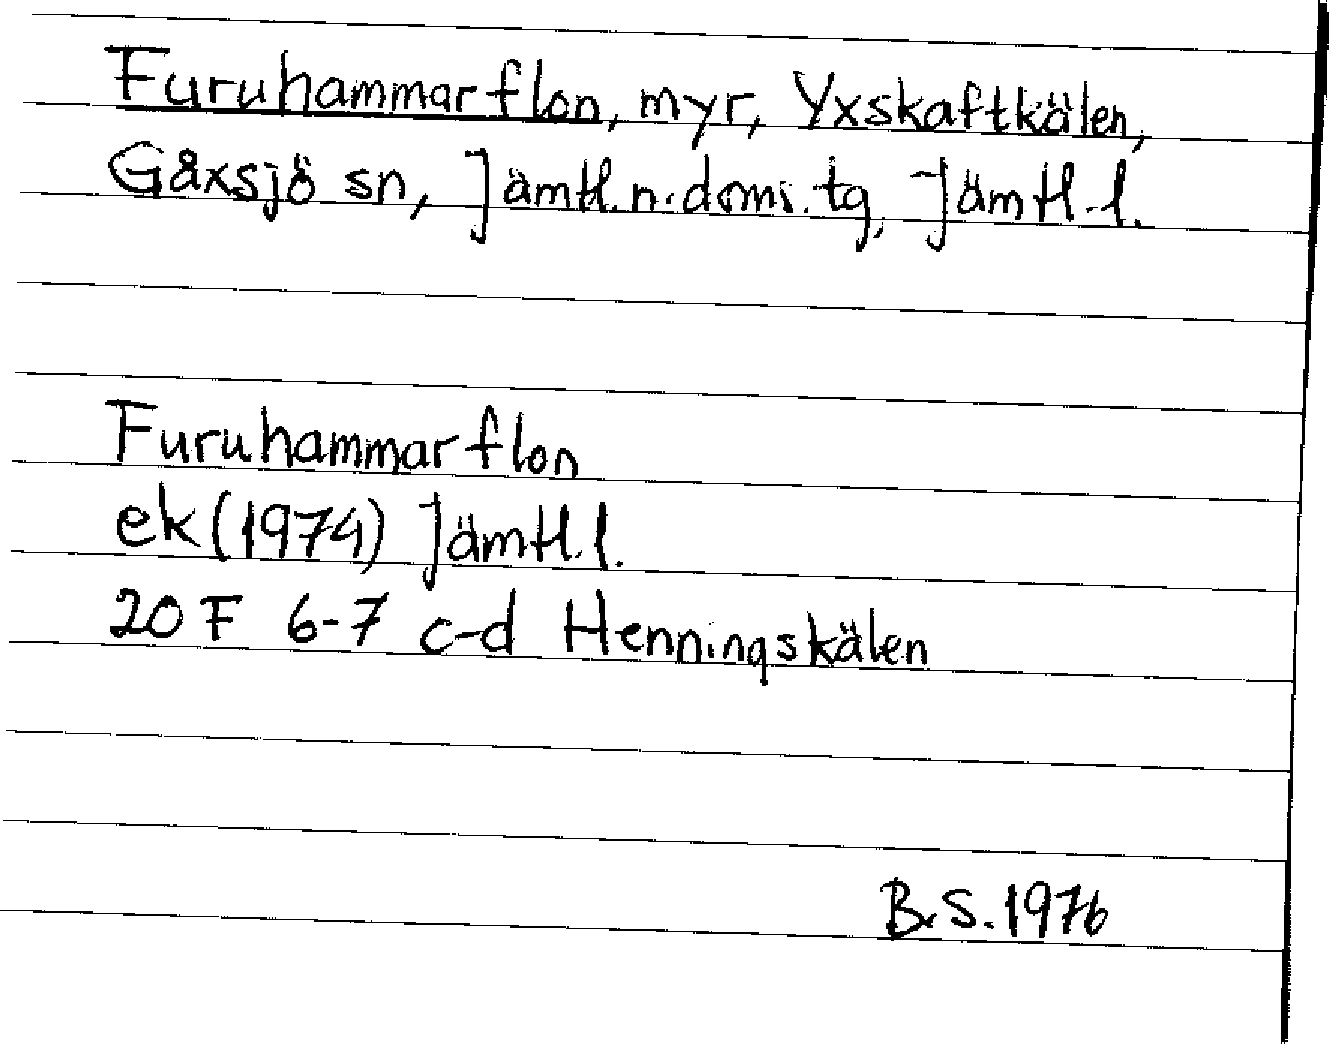 Furuhammarflon, myr, Yxskaftkälen,
Gåxsjö sn, Jämtl. n. doms. tg, Jämtl. l.
Furuhammarflon
ek (1974) Jämtl. l.
20 F 6-7 c-d Henningskälen
B.S. 1976